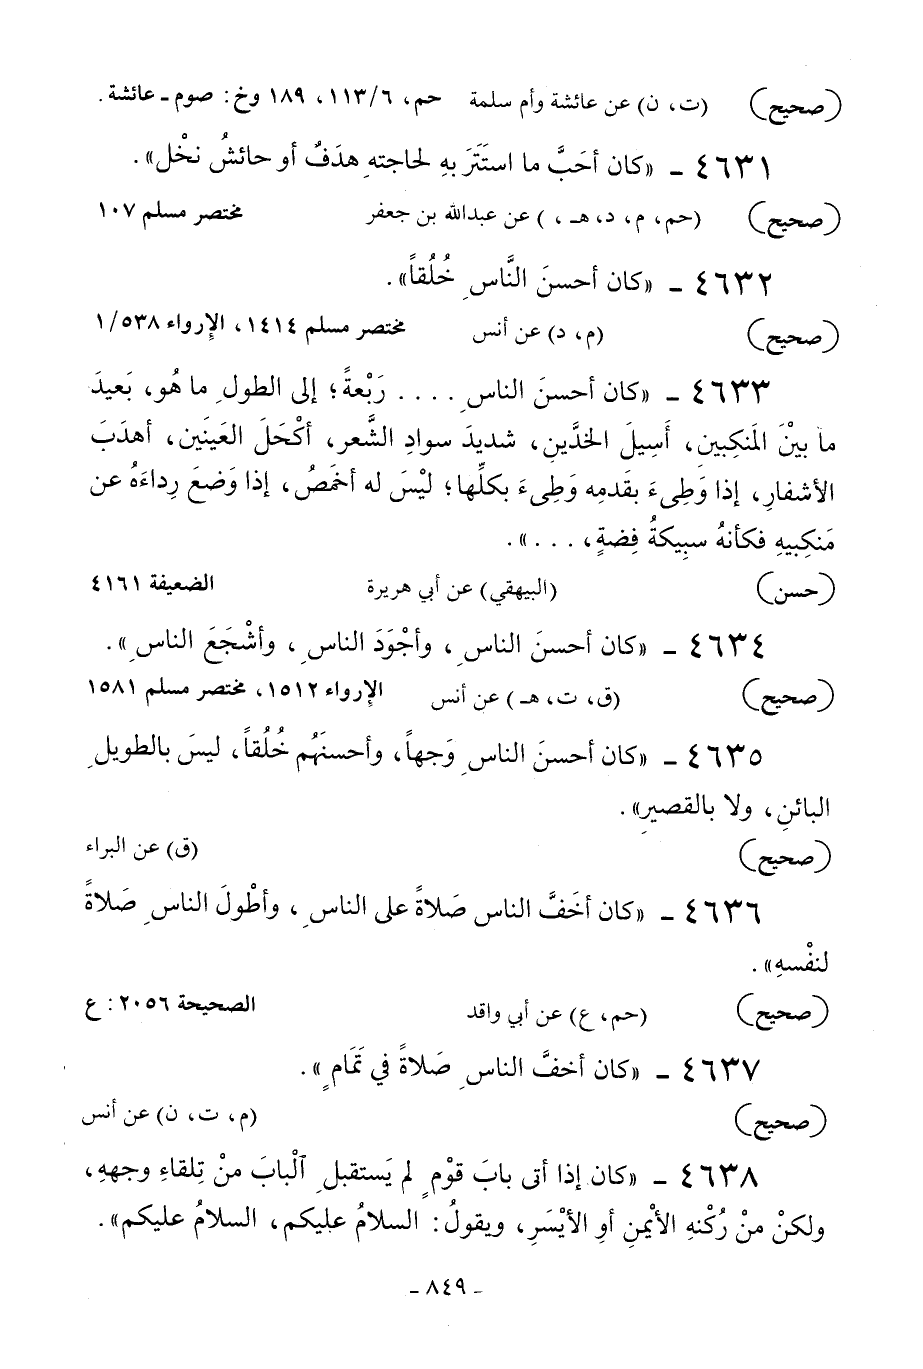 (صحيح) (ت، ن) عن عائشة وأم سلمة حم، ١١٣/٦، ١٨٩ وخ: صوم ـ عائشة.
٤٦٣١ ـ «كان أحَبَّ ما استَتَرَ بهِ لحاجتهِ هدَفٌ أو حائشُ نخْل».
(صحيح) (حم، م، د، هـ ،) عن عبدالله بن جعفر مختصر مسلم ١٠٧
٤٦٣٢ ـ «كان أحسنَ النَّاسِ خُلُقاً».
(صحيح) (م، د) عن أنس مختصر مسلم ١٤١٤، الإرواء ٥٣٨/١
٤٦٣٣ ـ «كان أحسنَ الناسِ .... رَبْعةً؛ إلى الطولِ ما هُو، بَعيدَ
ما بيْنَ المَنكِبين، أَسِيلَ الخدَّين، شديدَ سوادِ الشَّعر، أكْحَلَ العَينَين، أهدَبَ
الأشفارِ، إذا وَطِىءَ بقدمِه وَطِىءَ بكلِّها؛ ليْسَ له أخمَصُ، إذا وَضعَ رِداءَهُ عن
مَنكِبيهِ فكأنهُ سبِيكةُ فِضةٍ، ...».
(حسن) (البيهقي) عن أبي هريرة الضعيفة ٤١٦١
٤٦٣٤ ـ «كان أحسنَ الناسِ، وأجْوَدَ الناسِ، وأشْجَعَ الناسِ».
(صحيح) (ق، ت، هـ) عن أنس الإرواء ١٥١٢، مختصر مسلم ١٥٨١
٤٦٣٥ ـ «كان أحسنَ الناسِ وَجهاً، وأحسنَهُم خُلُقاً، ليسَ بالطويلِ
البائنِ، ولا بالقصيرِ».
(صحيح) (ق) عن البراء
٤٦٣٦ ـ «كان أخَفَّ الناس صَلاةً على الناسِ، وأطْولَ الناسِ صَلاةً
لنفْسهِ».
(صحيح) (حم، ع) عن أبي واقد الصحيحة ٢٠٥٦: ع
٤٦٣٧ ـ «كان أخفَّ الناسِ صَلاةً في تَمَامٍ».
(صحيح) (م، ت، ن) عن أنس
٤٦٣٨ ـ «كان إذا أتى بابَ قوْمٍ لم يَستقبلِ ٱلْبابَ منْ تِلقاءِ وجههِ،
ولكنْ منْ رُكْنهِ الأيْمنِ أوِ الأيْسَرِ، ويقولُ: السلامُ عليكم، السلامُ عليكم».
ـ ٨٤٩ ـ